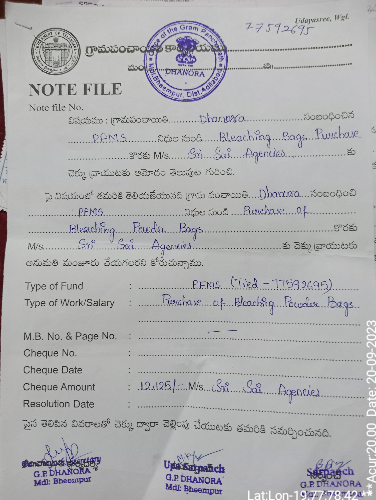 Udayasree, Wgl.
77592695
గ్రామపంచాయితి కార్యాలయము
Office of the Gram Panchayath
DHANORA
Mdl.Bheempur, Dist.Adilabad
NOTE FILE
Note file No.
విషయము : గ్రామపంచాయితి Dhanora సంబంధించిన
PFMS నిధుల నుండి Bleaching Bags Purchase
కొరకు M/s Sri Sai Agencies కు
చెక్కు వ్రాయుటకు ఆమోదం తెలుపుట గురించి.
పై విషయంలో తమరికి తెలియజేయునది గ్రామ పంచాయితి Dhanora సంబంధించి
PFMS నిధుల నుండి Purchase of
Bleaching Powder Bags కొరకు
M/s Sri Sai Agencies కు చెక్కు వ్రాయుటకు
అనుమతి మంజూరు చేయగలరని కోరుచున్నాము.
Type of Fund : PFMS (Tied - 77592695)
Type of Work/Salary : Purchase of Bleaching Powder Bags
M.B. No. & Page No. : --
Cheque No. :
Cheque Date :
Cheque Amount : 12125/- M/s Sri Sai Agencies
Resolution Date :
పైన తెలిపిన వివరములతో చెక్కు ద్వారా చెల్లింపు చేయుటకు తమరికి సమర్పించునది.
G.P. DHANORA
Mdl: Bheempur
Upa Sarpanch
G.P. DHANORA
Mdl: Bheempur
Sarpanch
G.P. DHANORA
Mdl: Bheempur
Acur:20.00 Date: 20-09-2023